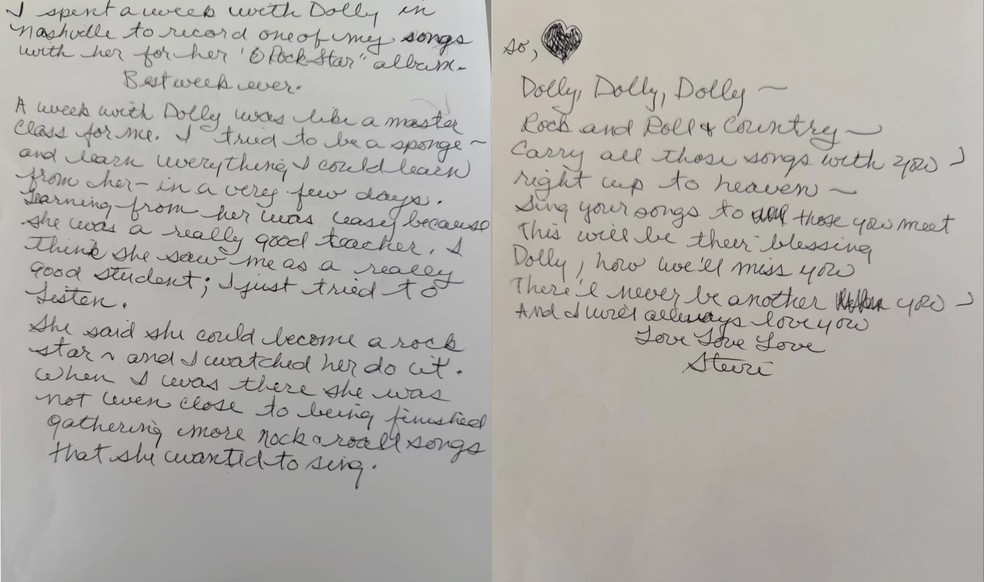 I spent a week with Dolly in
Nashville to record one of my songs
with her for her "Rock Star" album.
Best week ever.
A week with Dolly was like a master
class for me. I tried to be a sponge ~
and learn everything I could learn
from her - in a very few days.
Learning from her was easy because
she was a really good teacher. I
think she saw me as a really
good student; I just tried to
listen.
She said she could become a rock
star ~ and I watched her do it.
When I was there she was
not even close to being finished
gathering more rock & roll songs
that she wanted to sing.
So,
Dolly, Dolly, Dolly ~
Rock and Roll & Country ~
Carry all those songs with you ~
right up to heaven ~
Sing your songs to those you meet
This will be their blessing
Dolly, how we'll miss you
There'll never be another you ~
And I will always love you
Love Love Love
Stevie